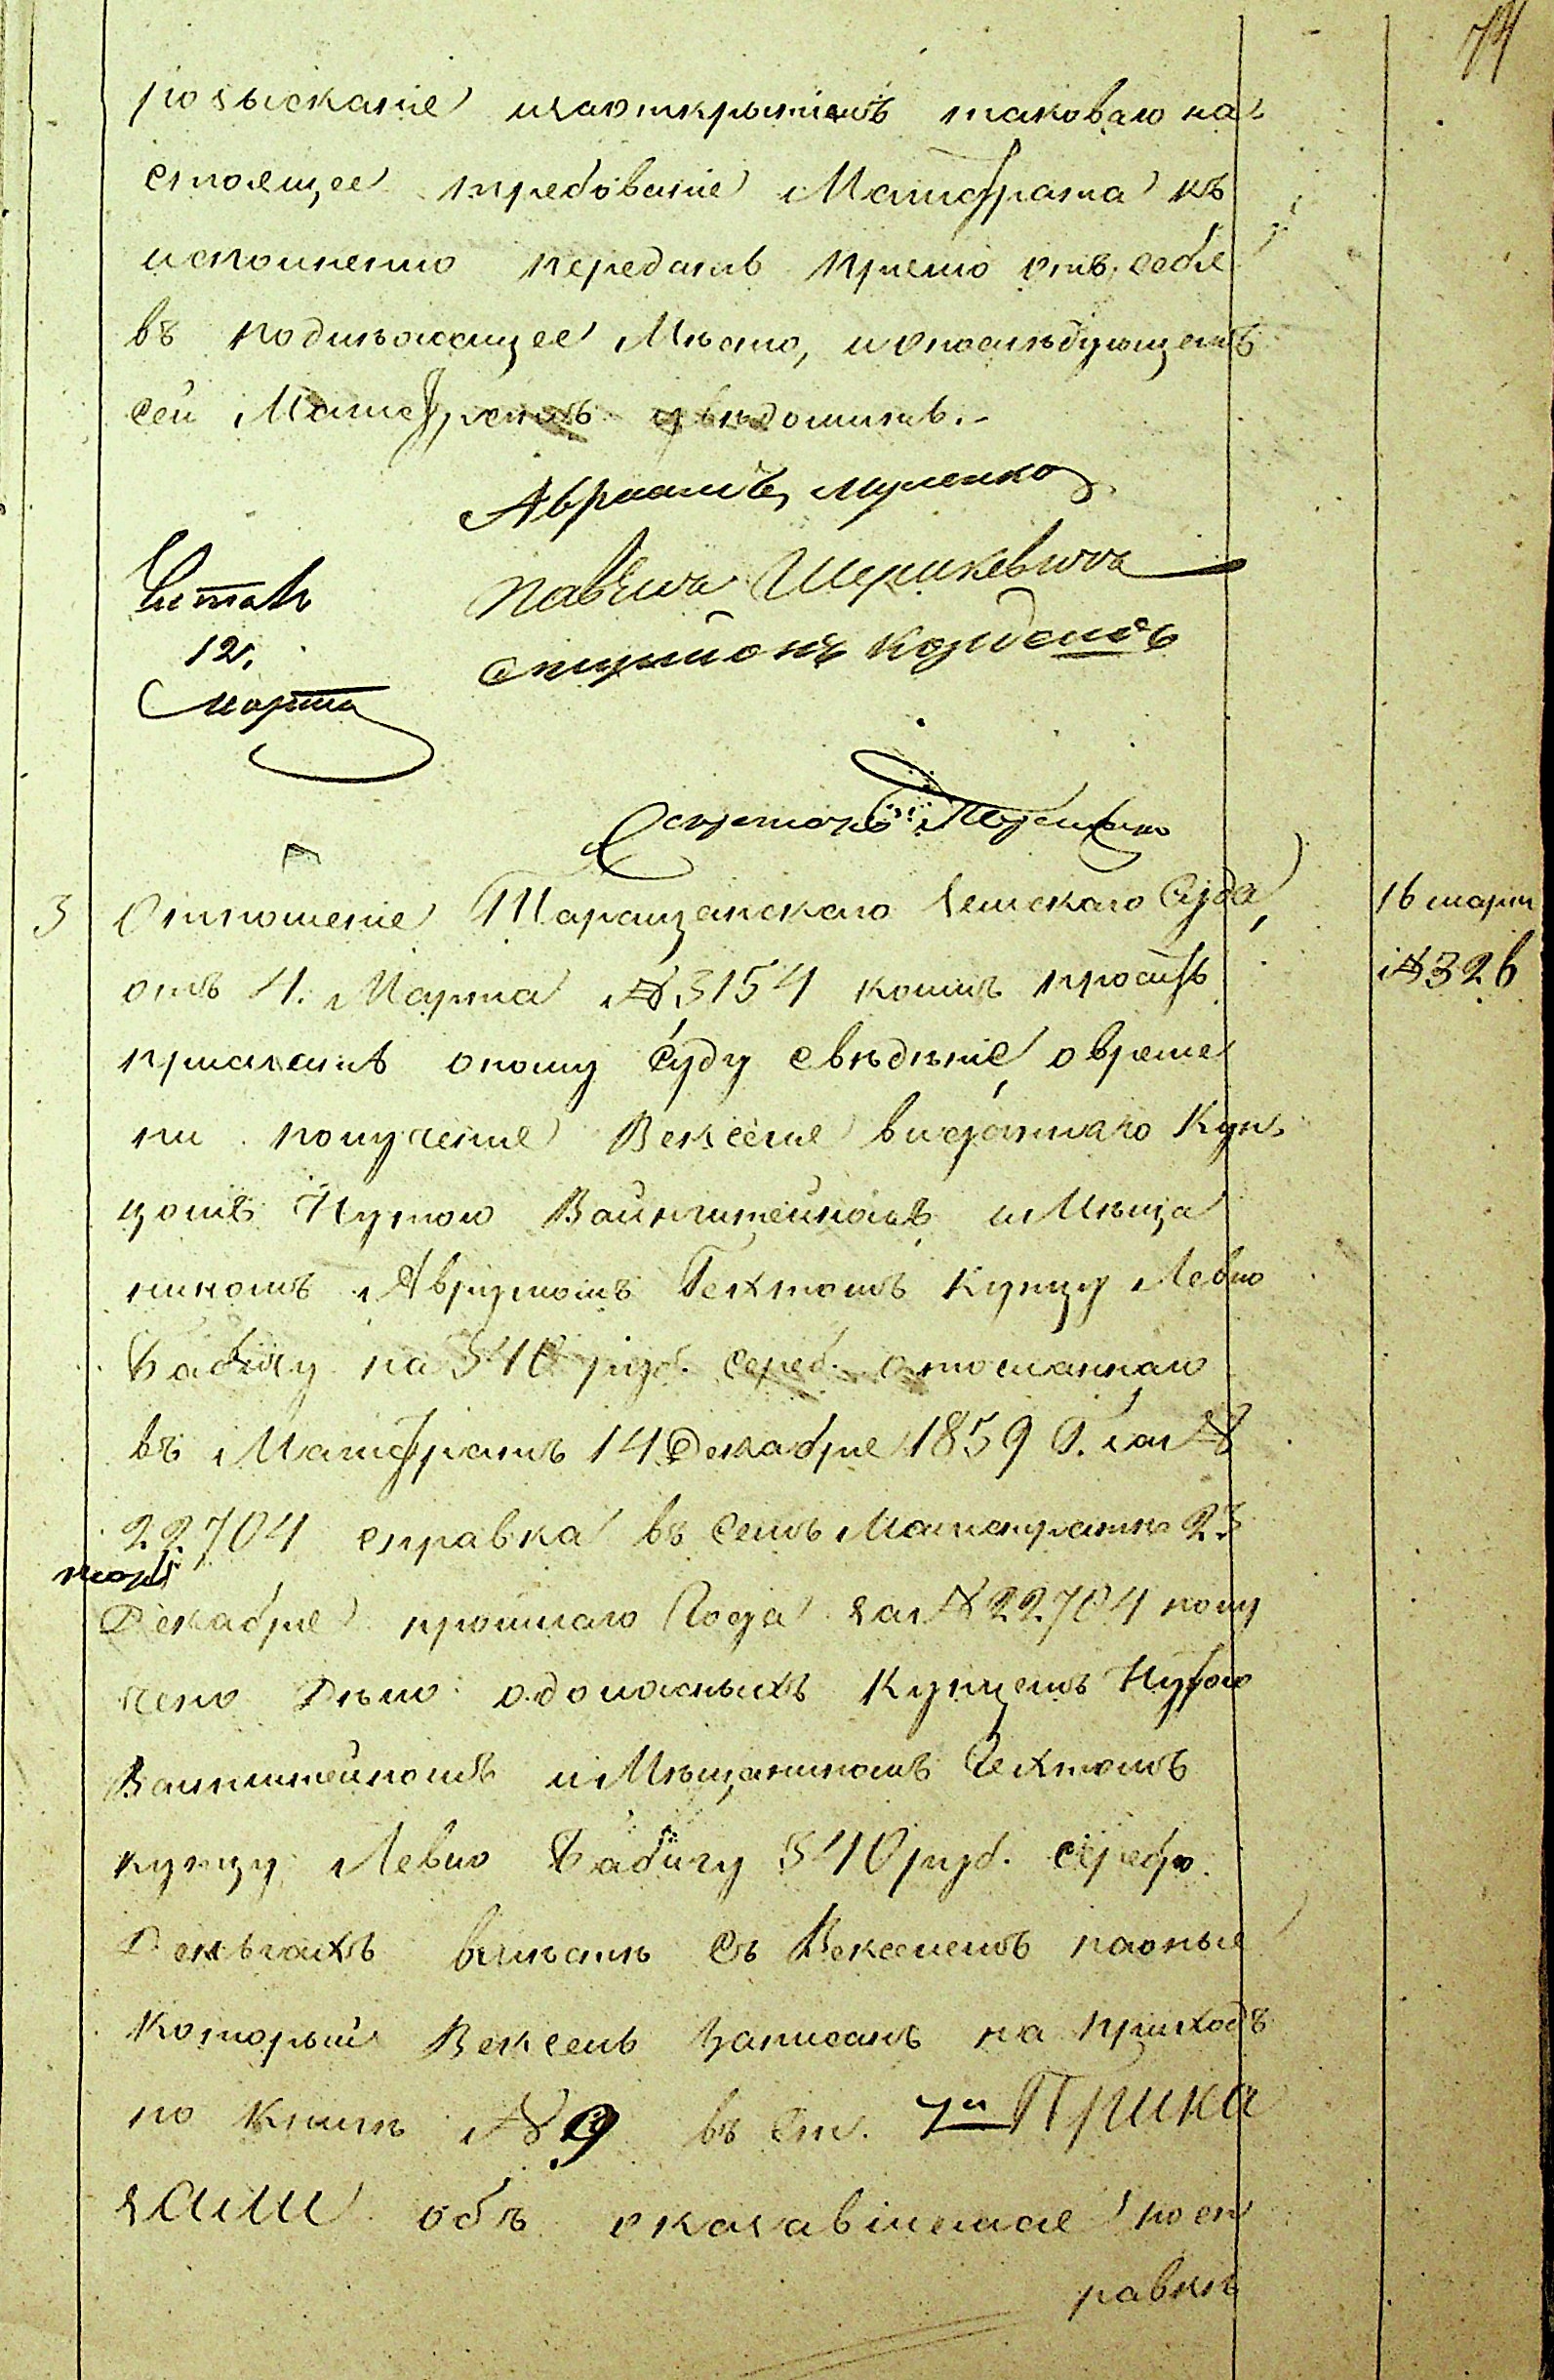 розысканіе изаоткрытіемъ таковаго на
стоящее требованіе Магистрата къ
исполненію передать прямо отъ себя
въ подлежащее Мѣсто, ипослѣдующемъ
сей Магистратъ увѣдомить.-
Авраамъ
Павелъ
Читалъ
12.
Марта
Спиридонъ
Секретарь
3
Отношеніе Таращанскаго Земскаго Суда,
16 марта
№ 326
отъ 4. Марта № 3154 коимъ проситъ
прислать оному Суду свѣдѣніе овреме
ни полученія Векселя виданнаго Куп
цомъ Нутою Вайнштейномъ иМѣща
ниномъ Аврумомъ Гехтомъ Купцу Левко
Бабичу на 540 руб. сереб. отосланнаго
въ Магистратъ 14 Декабря 1859 г. за №
22704 справка въ семъ Магистратѣ 23
Декабря прошлаго Года за № 22704 полу
чено Дѣло одолжныхъ Купцемъ Нутою
Ваинштейномъ иМѣщаниномъ Гехтомъ
купцу Левко Бабичу 540 руб. серебр.
Деньгахъ вмѣстѣ съ Векселемъ наоные
который Вексель Записанъ на приходъ
по книгѣ № 9 въ Ст. Прика
зали объ оказавшемся по сп
равкѣ